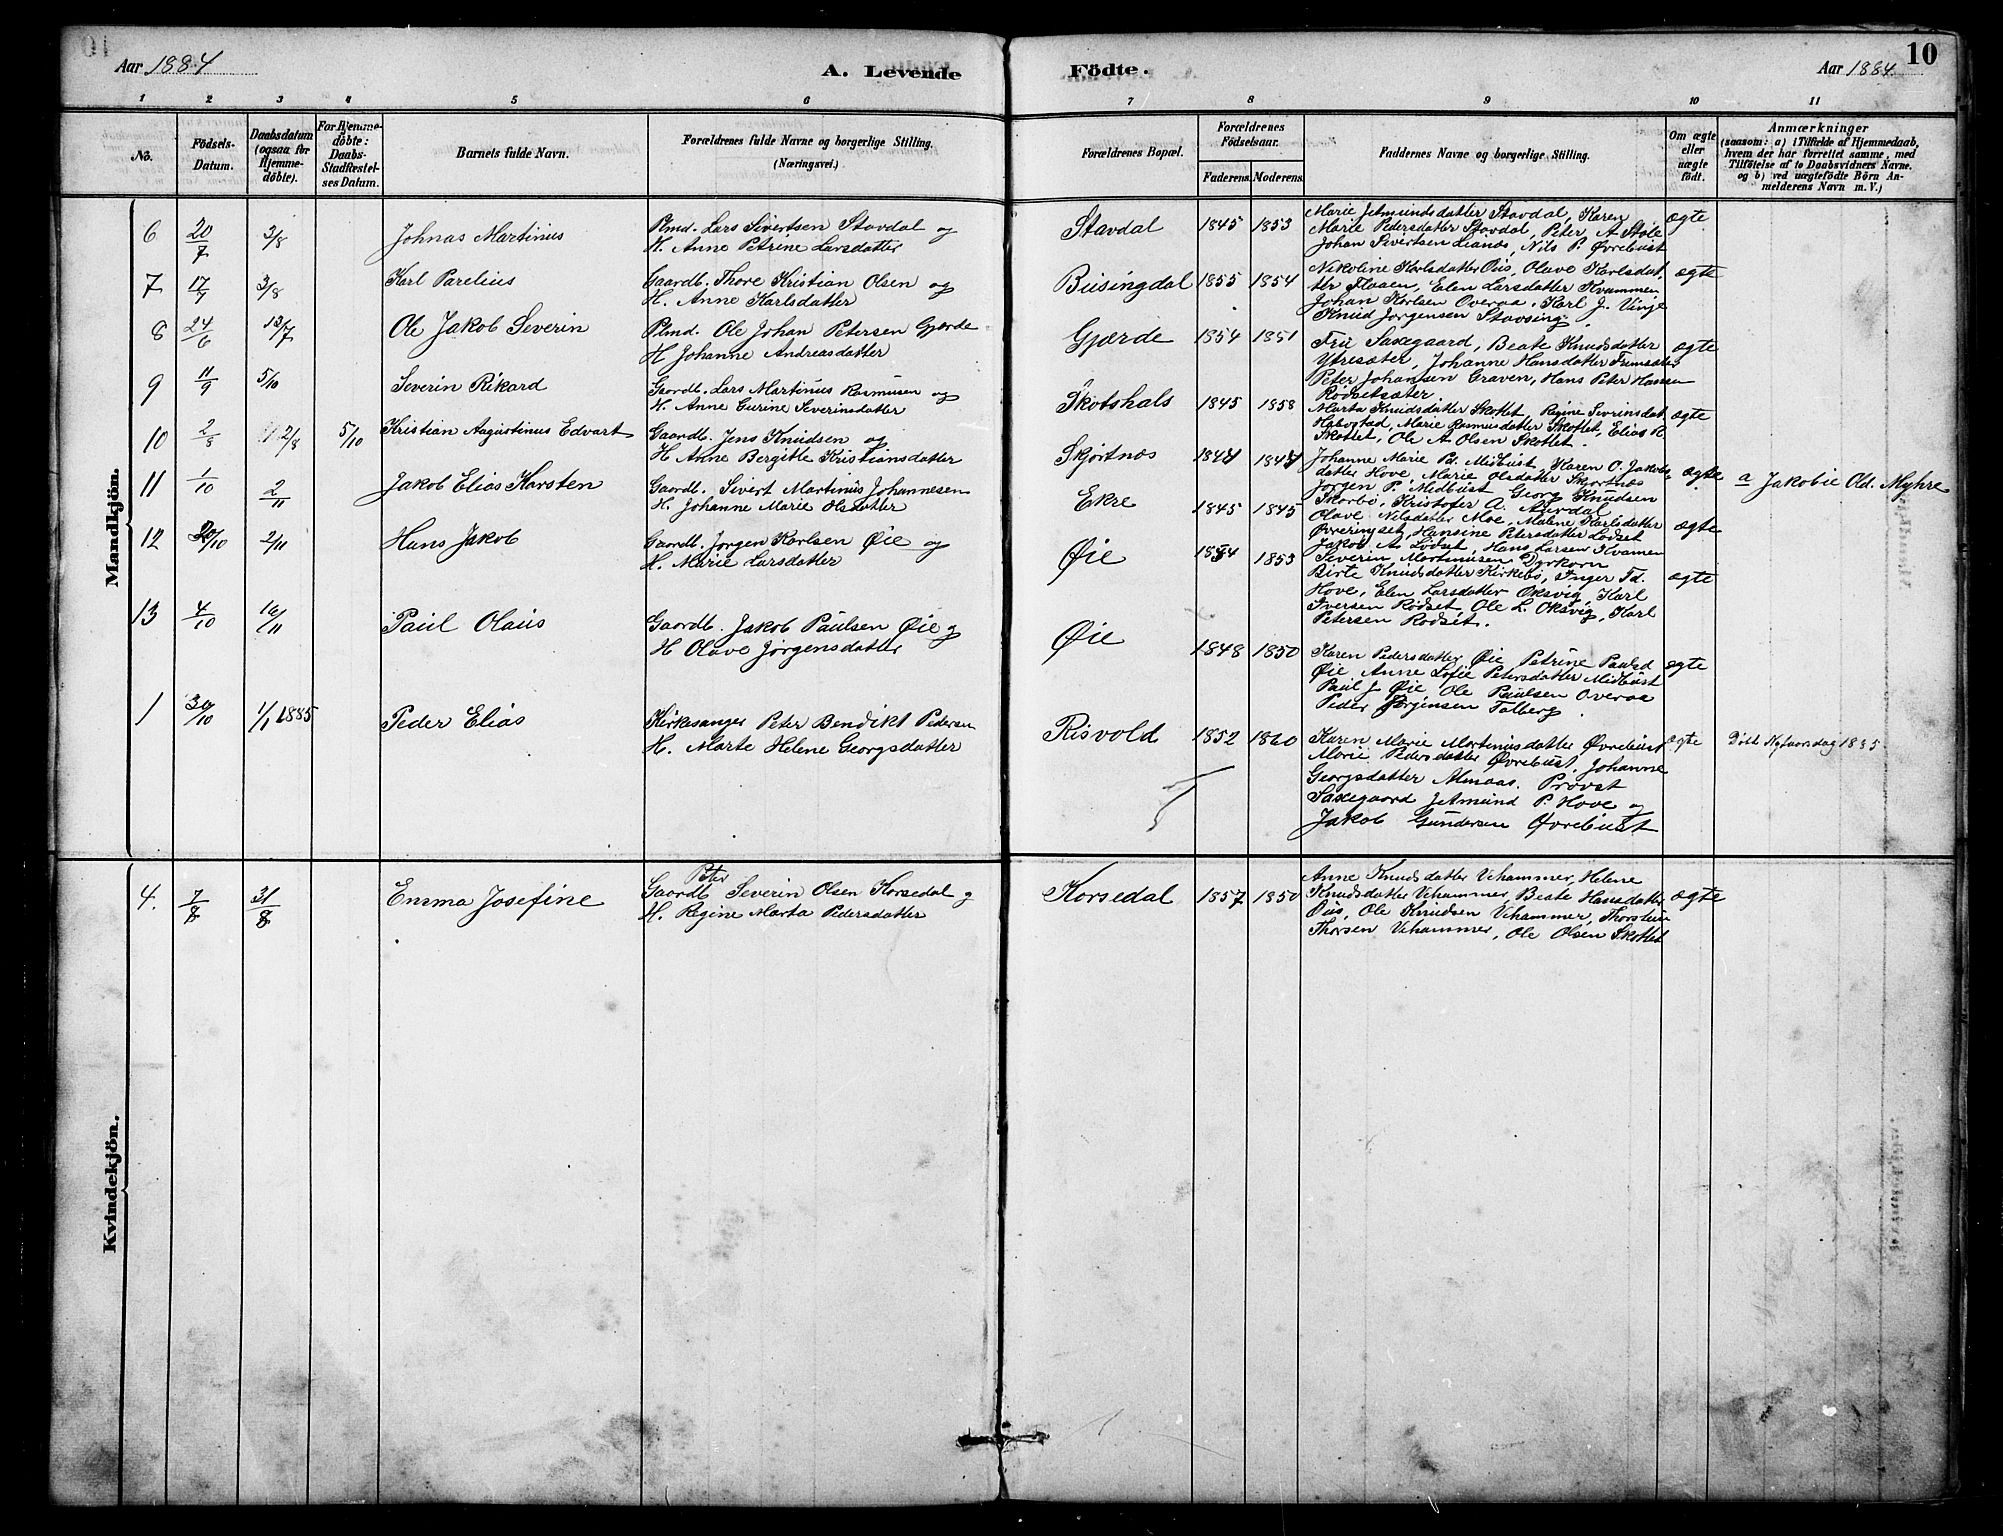 Aar 1884
A. Levende Födte.
Aar 1884
10
1 2 3 4 5 6 7 8 9 10 11
No.
Födsels-Datum.
Daabsdatum (ogsaa for Hjemme-döbte).
For Hjemme-döbte: Daabs-Stadfæstel-ses Datum.
Barnets fulde Navn.
Forældrenes fulde Navne og borgerlige Stilling. (Næringsvei.)
Forældrenes Bopæl.
Forældrenes Födselsaar.
Faderens. Moderens.
Faddernes Navne og borgerlige Stilling.
Om ægte eller uægte födt.
Anmærkninger
(saasom: a) i Tilfælde af Hjemmedaab, hvem der har forrettet samme, med Tilföielse af to Daabsvidners Navne. og b) ved uægtefödte Börn An-melderens Navn m. V.)
Mandkjön.
6 20/7 3/8 Johnas Martinus
Plmd. Lars Sivertsen Stavdal og
H. Anne Petrine Larsdatter
Stavdal 1845 1853
Marie Jetmundsdatter Stavdal, Karen
Marie Pedersdatter Stavdal, Peter A Støle
Johan Sivertsen Lianes, Nils P. Øvrebust
ægte
7 17/7 3/8 Karl Parelius
Gaardb. Thore Kristian Olsen og
H. Anne Karlsdatter
Busingdal 1855 1854
Nikoline Karlsdatter Øus, Olave Karlsdat
ter Floaen, Elen Larsdatter Kvammen
Johan Karlsen Overaa. Karl J. Vinje
Knud Jørgensen Stavseng.
ægte
8 24/6 13/7 Ole Jakob Severin
Plmd. Ole Johan Petersen Gjærde
H Johanne Andreasdatter
Gjærde 1854 1851
Fru Saxegaard, Beate Knudsdatter
Ytresæter, Johanne Hansdatter Fremsæter
Peter Johansen Graven, Hans Peter Hansen
Rødsetsæter
ægte
9 11/9 5/10 Severin Rikard
Gaardb. Lars Martinus Rasmusen og
H. Anne Gurine Severinsdatter
Skotshals 1845 1858
Marta Knudsdatter Skottet, Regine Sevrinsdat
Habostad, Marie Rasmusdatter Skottet, Elias R.
Skottet, Ole A. Olsen Skottet.
ægte
10 2/8 12/8 5/10 Kristian Augustinus Edvart
Gaardb. Jens Knudsen og
H Anne Bergitte Kristiansdatter
Skjørtnæs 1844 1844
Johanne Marie Pd. Midbust, Karen O. Jakobs
datter Hove, Marie Olsdatter Skortnæs
Jørgen P. Midbust Georg Knudsen
Skorbø, Kristofer A. Aurdal
ægte
a Jakobie Old. Myhre
11 1/10 2/11 Jakob Elias Karsten
Gaardb. Sivert Martinus Johannesen
H. Johanne Marie Hsdatter
Ekre 1845 1845
Olave Nilsdatter Moe, Malene Karlsdatter
Øvreringset, Hansine Petersdatter Lødset
Jakob A. Lødset, Hans Larsen Kvamen
Severin Martinusen Dyrkorn
ægte
12 20/10 2/11 Hans Jakob
Gaardb. Jørgen Karlsen Øie og
H. Marie Larsdatter
Øie 1854 1853
Birte Knudsdatter Kirkebø, Inger Td.
Hove, Elen Larsdatter Oksvig, Karl
Iversen Rødset, Ole L. Oksvig, Karl
Petersen Rødset.
ægte
13 4/10 16/11 Paul Olaus
Gaardb. Jakob Paulsen Øie og
H Olave Jørgensdatter
Øie 1848 1850
Karen Pedersdatter Øie, Petrine Paulsd
Øie, Anne Sofie Petersdatter Midbust
Paul J. Øie, Ole Paulsen Overaa
Peder Jørgensen Talberg.
ægte
1 30/10 1/1 1885 Peder Elias
Kirkesanger Peter Bendikt Pedersen
H. Marte Helene Georgsdatter
Risvold 1852 1860
Karen Marie Martinusdatter Øvrebust
Marie Pedersdatter Øvrebust, Johanne
Georgsdatter Almaas. Provst
Saxegaard Jetmund P. Hove og
Jakob Gundersen Øvrebust
ægte
Døbt Nytaarsdag 1885
Kvindekjön.
4. 7/8 31/8 Emma Josefine
Peter
Gaardb Severin Olsen Korsedal og
H. Regine Marta Pedersdatter
Korsedal 1857 1850
Anne Knudsdatter Vehammer, Helene
Knudsdatter Vehammer, Beate Hansdatter
Øus, Ole Knudsen Vehammer, Thorstein
Thorsen Vehammer, Ole Olsen Skottet
ægte